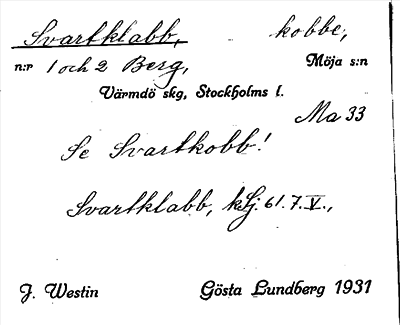 Svartklabb, kobbe,
n:r 1 och 2 Berg, Möja s:n
Värmdö skg, Stockholms l.
Ma 33
Se Svartkobb!
Svartklabb, kSj. 61.7.V.,
J. Westin Gösta Lundberg 1931